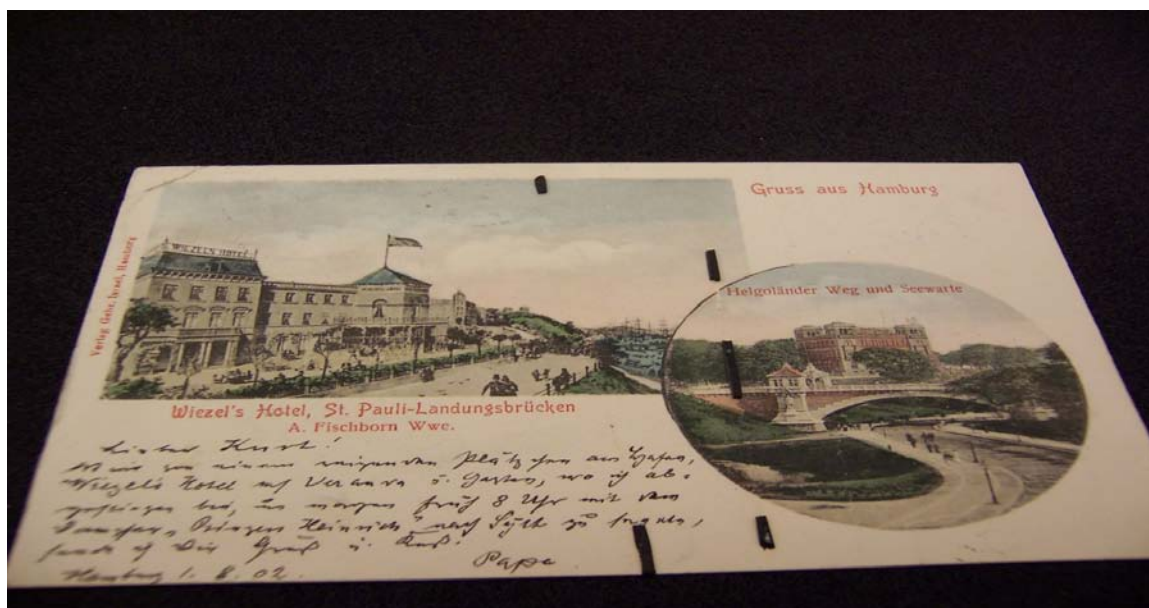 Gruss aus Hamburg
WIEZELS HOTEL
Verlag Gebr. Israel, Hamburg
Helgoländer Weg und Seewarte
Wiezel's Hotel, St. Pauli-Landungsbrücken
A. Fischborn Wwe.
Lieber Kurt!
einem reizenden Plätzchen am Hafen,
Wiezel's Hotel auf Veranda u. Garten, wo ich ab-
gestiegen bin, um morgen früh 8 Uhr mit dem
Dampfer "Prinzess Heinrich" nach Sylt zu
sende ich Dir Gruß u. Kuß.
Papa
Hamburg 1. 8. 02.